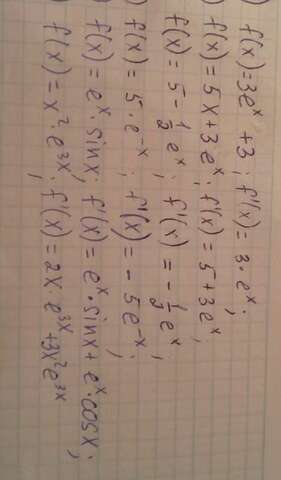 ) f(x)=3e^x +3; f'(x)=3·e^x;
) f(x)=5x+3e^x; f'(x)=5+3e^x;
f(x)=5-\frac{1}{2}e^x; f'(x)=-\frac{1}{2}e^x;
) f(x)=5·e^{-x}; f'(x)=-5e^{-x};
) f(x)=e^x·sinx; f'(x)=e^x·sinx+e^x·cosx;
) f(x)=x^2·e^{3x}; f'(x)=2x·e^{3x}+3x^2e^{3x}